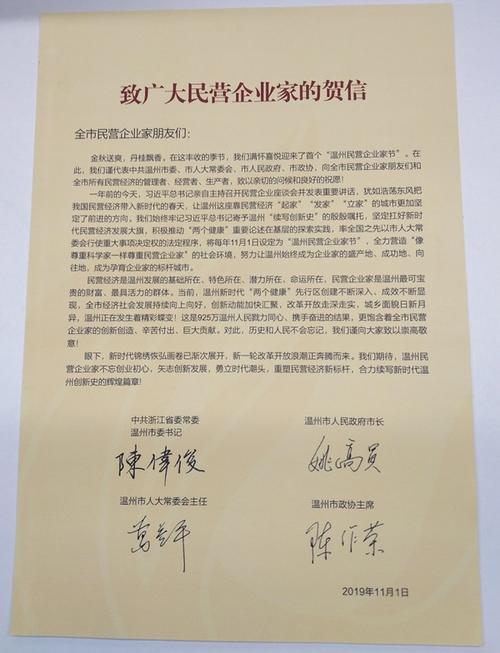 致广大民营企业家的贺信
全市民营企业家朋友们：
金秋送爽，丹桂飘香。在这丰收的季节，我们满怀喜悦迎来了首个“温州民营企业家节”。在
此，我们谨代表中共温州市委、市人大常委会、市人民政府、市政协，向全市民营企业家朋友们和
全市所有民营经济的管理者、经营者、生产者，致以亲切的问候和良好的祝愿！
一年前的今天，习近平总书记亲自主持召开民营企业座谈会并发表重要讲话，犹如浩荡东风把
我国民营经济带入新时代的春天，让温州这座靠民营经济“起家”“发家”“立家”的城市更加坚
定了前进的方向。我们始终牢记习近平总书记寄予温州“续写创新史”的殷殷嘱托，坚定打好新
时代民营经济发展大旗，积极推动“两个健康”重要论述在基层的探索实践，率全国之先以市人大常
委会行使重大事项决定权的法定程序，将每年11月1日设定为“温州民营企业家节”，全力营造“像
尊重科学家一样尊重民营企业家”的社会环境，努力让温州始终成为企业家的盛产地、成功地、向
往地，成为孕育企业家的标杆城市。
民营经济是温州发展的基础所在、特色所在、潜力所在、命运所在，民营企业家是温州最可宝
贵的财富、最具活力的群体。当前，温州新时代“两个健康”先行区创建不断深入、成效不断显现，
全市经济社会发展持续向上向好，创新动能加快汇聚，改革开放走深走实，城乡面貌日新月
异，温州正在发生着精彩蝶变！这是925万温州人民戮力同心、携手奋进的结果，更饱含着全市民
营企业家的创新创造、辛苦付出、巨大贡献。对此，历史和人民不会忘记，我们谨向大家致以崇高敬
意！
眼下，新时代锦绣恢弘画卷已渐次展开，新一轮改革开放浪潮正奔腾而来。我们期待，温州民
营企业家不忘创业初心，矢志创新发展，勇立时代潮头，重塑民营经济新标杆，合力续写新时代温
州创新史的辉煌篇章！
中共浙江省委常委
温州市委书记
陳偉俊
温州市人民政府市长
姚高员
温州市人大常委会主任
温州市政协主席
陈作荣
2019年11月1日